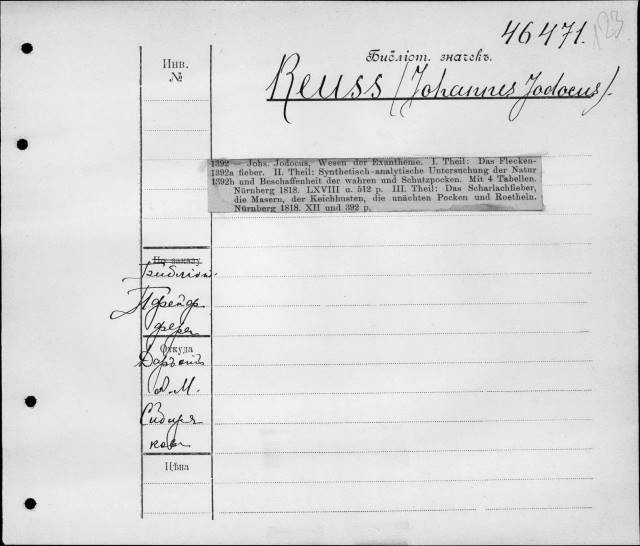 46471.
123
Инв.
№
Библіот. значекъ.
Reuss (Johannes Jodocus).
1392 — Johs. Jodocus, Wesen der Exantheme. I. Theil: Das Flecken-
1392a fieber. II. Theil: Synthetisch-analytische Untersuchung der Natur
1392b und Beschaffenheit der wahren und Schutzpocken. Mit 4 Tabellen.
Nürnberg 1818. LXVIII u. 512 p. III. Theil: Das Scharlachfieber,
die Masern, der Keichhusten, die unächten Pocken und Roetheln.
Nürnberg 1818. XII und 392 p.
По заказу
Библіот.
Пфейф
фера
Откуда
Даръ отъ
А. М.
Сибиря
кова
Цѣна